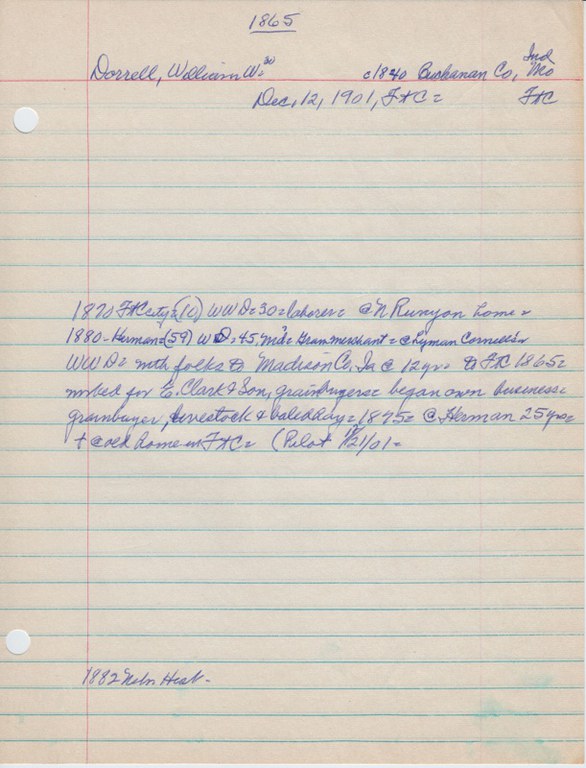 1865
Dorrell, William W=³⁰ c1840 Buchanan Co, Mo Ind
Dec, 12, 1901, Ft C= Ft C
1870 Ft C city=(10) W W D=30=laborer= @ N Runyon home=
1880- Herman=(59) W D=45, Md= Grain merchant=@ Lyman
W W D= with folks to Madison Co, Ia @ 12 yrs to Ft C 1865=
worked for E. Clark & Son, grainbuyers= began own business=
grainbuyer, livestock & baled hay= 1875= @ Herman 25 yrs=
+ @ old home in Ft C= (Pilot /21/01=
1882 Nebr Hist-